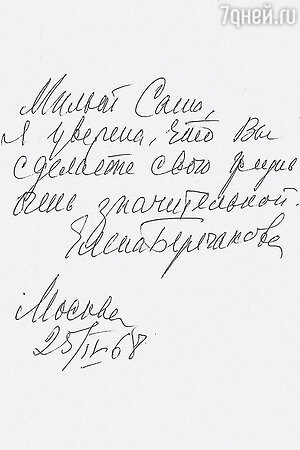 7дней.ru
Милый Саша,
я уверена, что Вы
сделаете свою жизнь
очень значительной.
Елена
Москва
25/IV 68